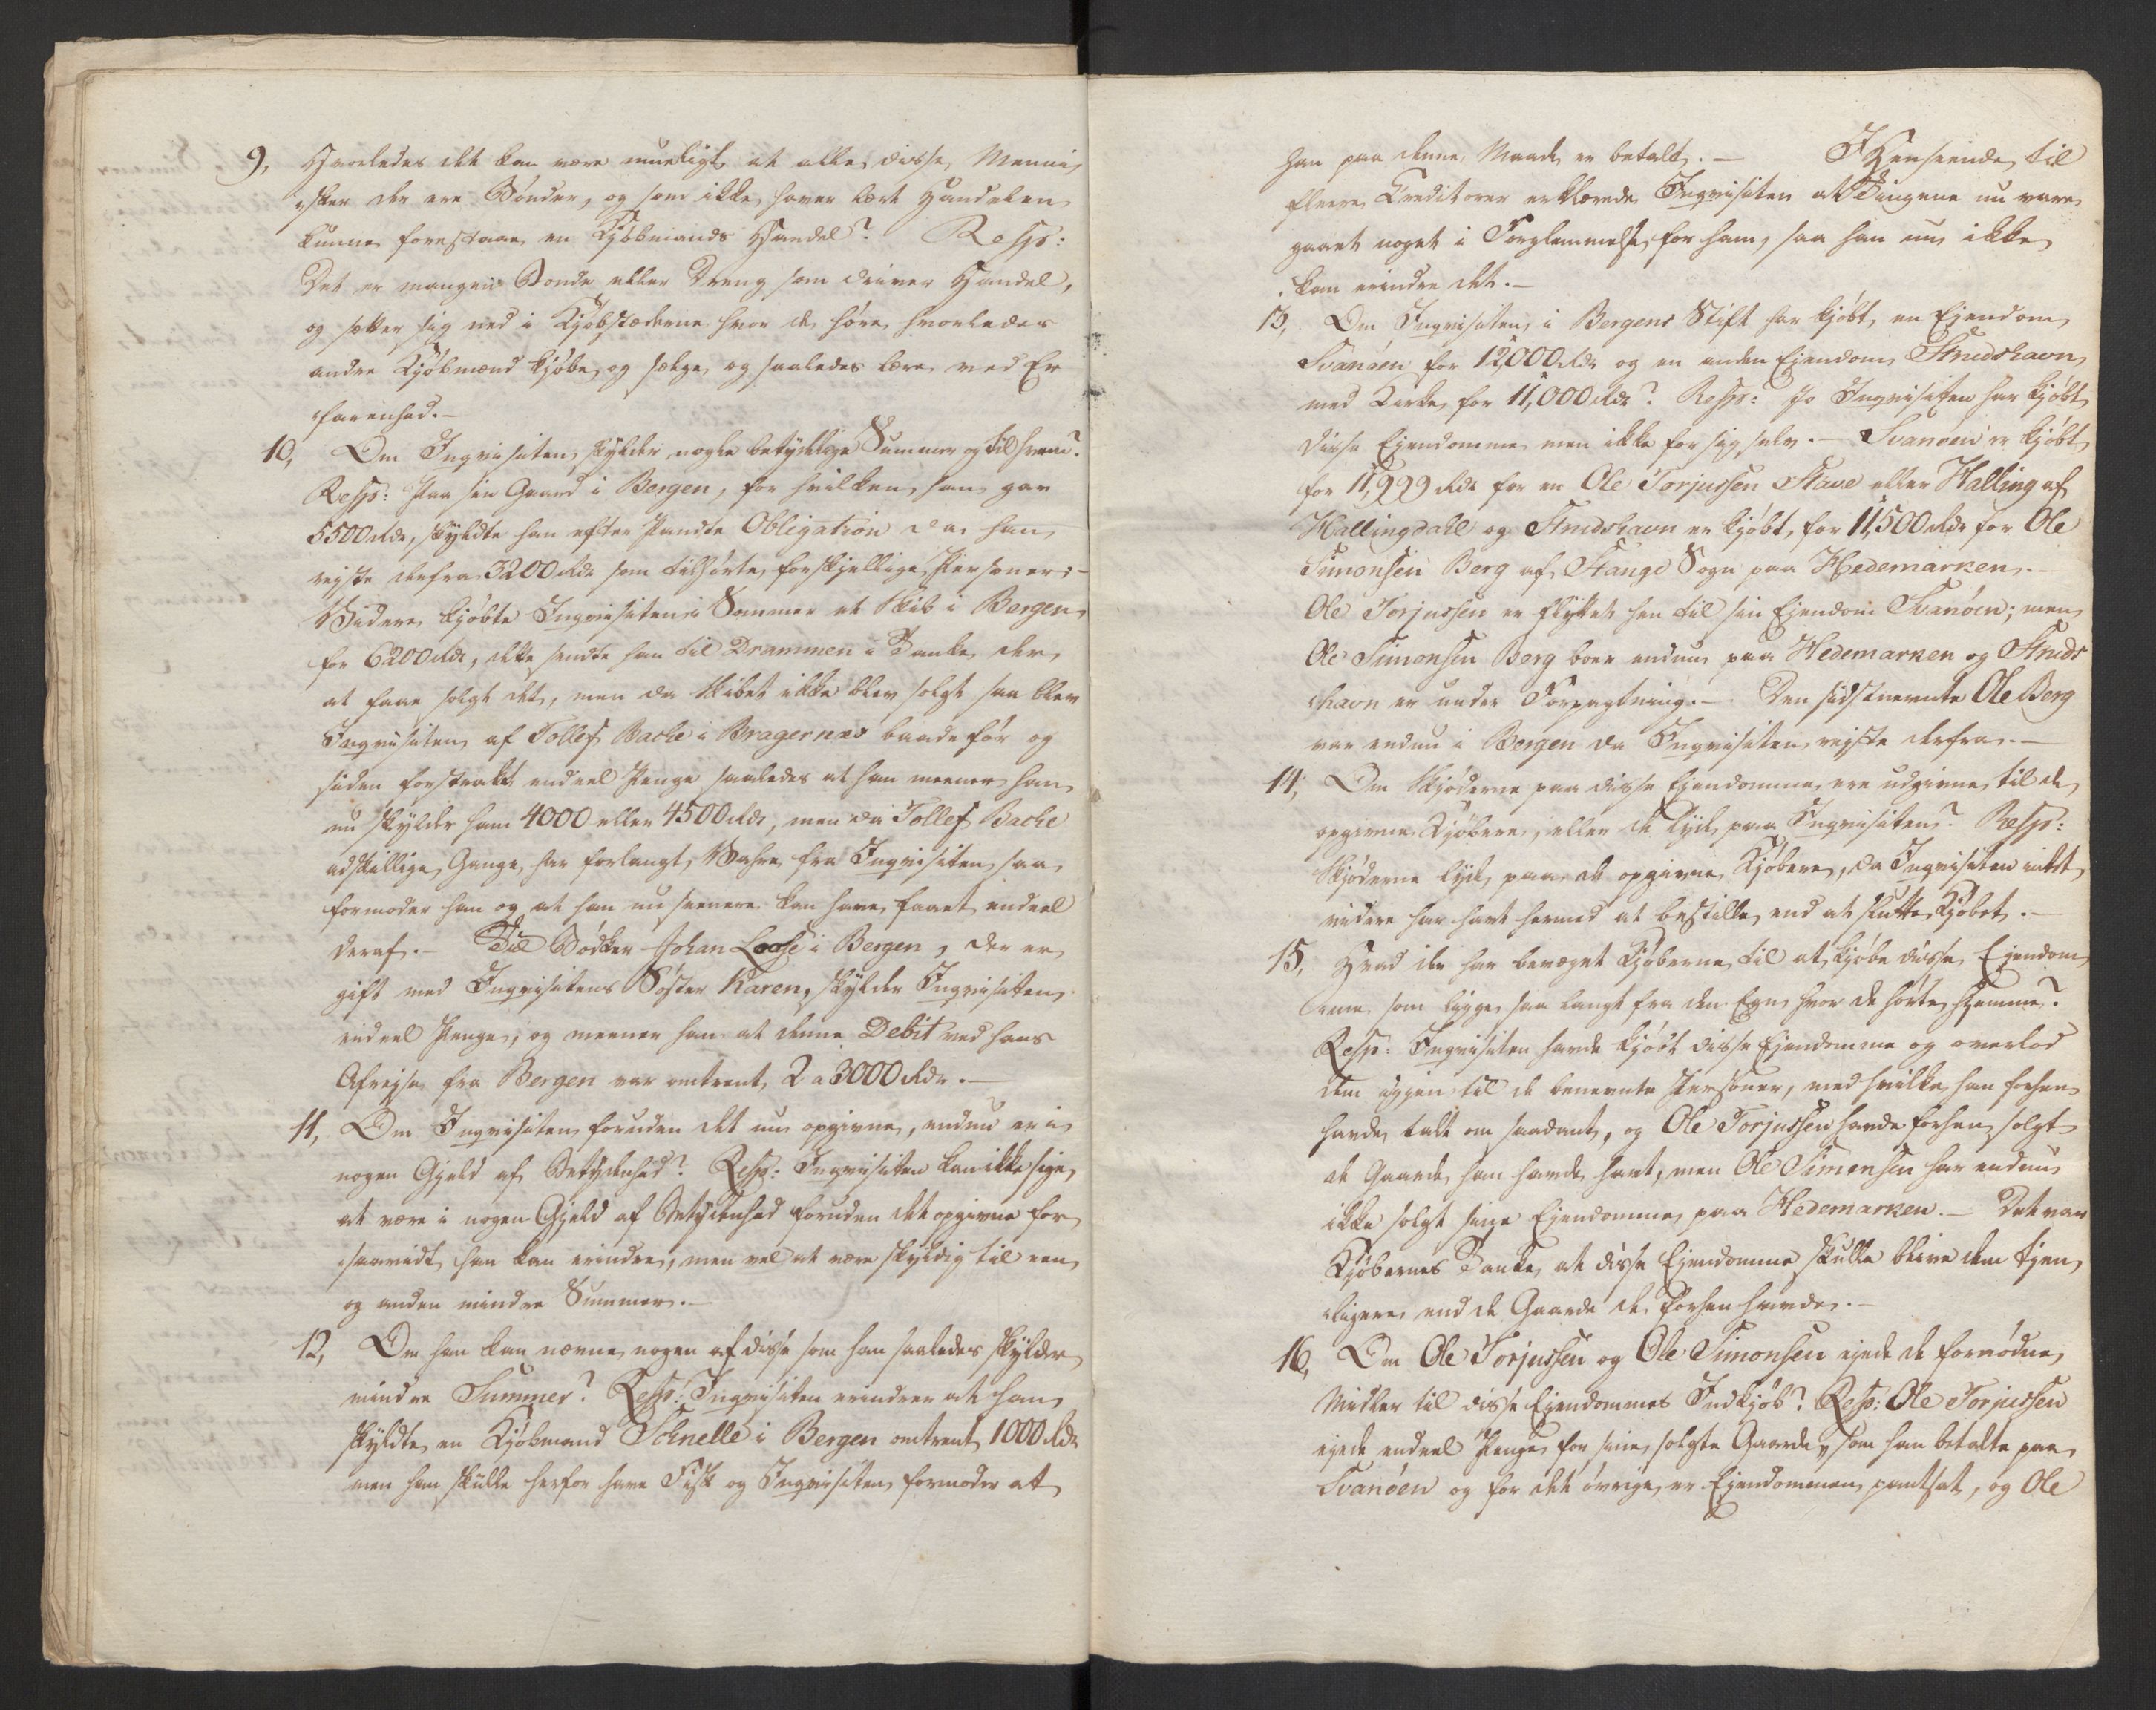 9, Hvorledes det kan være mueligt at alle disse Menni,
,sker der ere Bönder, og som ikke haver lært Handelen
kunne forestaae en Kjöbmands Handel? Resp:
Det er mangen Bonde eller Dreng som driver Handel,
og sætter sig ned i Kjöbstæderne hvor de höre hvorledes
andre Kjöbmænd kjöbe og sælge og saaledes lære ved Er
,farenhed.—
10, Om Inqvisiten skylder nogle betydelige Summer og til hvem?
Resp: Paa sin Gaard i Bergen, for hvilken han gav
5500 Rdr, skyldte han efter Pandte Obligation da han
rejste derfra 3200 Rdr som tilhörte forskjellige Personer;—
Videre kjöbte Inqvisiten i Sommer et Skib i Bergen
for 6200 Rdr, dette sendte han til Drammen i Tanke der
at faae solgt det, men da Skibet ikke blev solgt saa blev
Inqvisiten af Tollef Bache i Bragernæs baade för og
siden forstrakt endeel Penge saaledes at han meener han
nu skylder ham 4000 eller 4500 Rdr, men da Tollef Bache
adskillige Gange har forlangt Vahre fra Inqvisiten saa
formoder han og at han nu seenere kan have faaet endeel
deraf.— Til Bödker Johan Loose i Bergen, der er
gift med Inqvisitens Söster Karen, skylder Inqvisiten
endeel Penge, og meener han at denne Debit ved hans
Afrejse fra Bergen var omtrent 2 a 3000 Rdr.—
11, Om Inqvisiten foruden det nu opgivne, endnu er i
nogen Gjeld af Betydenhed? Resp: Inqvisiten kan ikke sige
at være i nogen Gjeld af Betydenhed foruden det opgivne for
,saavidt han kan erindre, men vel at være skyldig til een
og anden mindre Summer.—
12, Om han kan nævne nogen af disse som han saaledes skylder
mindre Summer? Resp: Inqvisiten erindrer at han
skyldte en Kjöbmand Schnelle i Bergen omtrent 1000 Rdr
men han skulle herfor have Fisk og Inqvisiten formoder at
han paa denne Maade er betalt.— I Henseende til
fleere Creditorer erklærede Inqvisiten at Tingene nu vare
gaaet noget i Forglemmelse for ham, saa han nu ikke
kan erindre det.—
13, Om Inqvisiten i Bergens Stift har kjöbt en Ejendom
Svanöen for 12,000 Rdr og en anden Ejendom Strudshavn
med Kirke for 11,000 Rdr? Resp: Jo Inqvisiten har kjöbt
disse Ejendomme men ikke for sig selv.— Svanöen er kjöbt
for 11,999 Rdr for en Ole Torjussen Stave eller Halling af
Hallingdahl og Strudshavn er kjöbt for 11,500 Rdr for Ole
Simonsen Berg af Stange Sogn paa Hedemarken.—
Ole Torjussen er flyttet hen til sin Ejendom Svanöen; men
Ole Simonsen Berg boer endnu paa Hedemarken og Struds
,havn er under Forpagtning.— Den sidstnevnte Ole Berg
var endnu i Bergen da Inqvisiten rejste derfra.—
14, Om Skjöderne paa disse Ejendomme ere udgivne til de
opgivne Kjöbere, eller de lyde paa Inqvisiten? Resp:
Skjöderne lyde paa de opgivne Kjöbere, da Inqvisiten intet
videre har havt hermed at bestille end at slutte Kjöbet.—
15, Hvad der har bevæget Kjöberne til at kjöbe disse Ejendom
,me som ligge saa langt fra den Egn hvor de hörte hjemme?
Resp: Inqvisiten havde kjöbt disse Ejendomme og overlod
dem igjen til de benævnte Personer, med hvilke han forhen
havde talt om saadant, og Ole Torjussen havde forhen solgt
de Gaarde han havde havt, men Ole Simensen har endnu
ikke solgt sine Ejendomme paa Hedemarken.— Det var
Kjöbernes Tanke at disse Ejendomme skulle blive dem tjen
,ligere end de Gaarde de forhen havde.—
16, Om Ole Torjussen og Ole Simonsen ejede de fornödne
Midler til disse Ejendommes Indkjöb? Resp: Ole Torjussen
ejede endeel Penge for sine solgte Gaarde, som han betalte paa
Svanöen og for det övrige er Ejendommen pantsat, og Ole